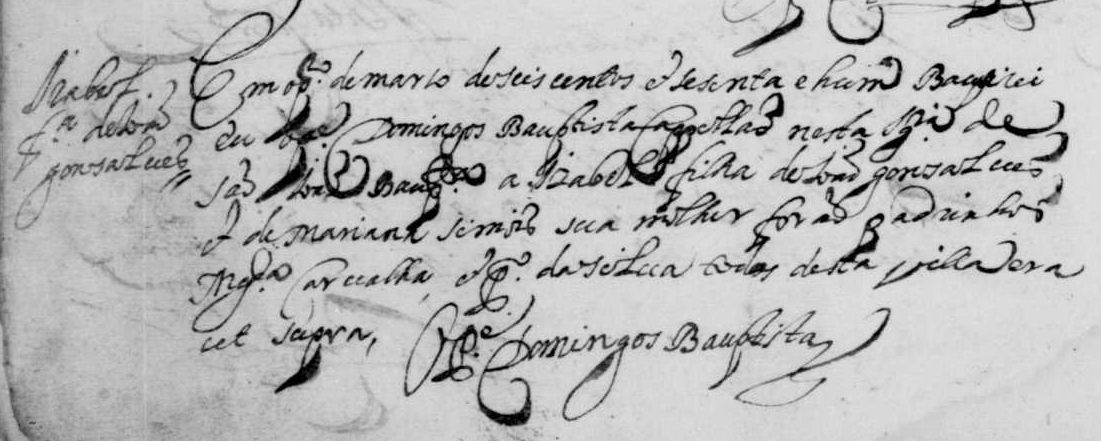 Izabel.
f.ª de Joaõ
gonsalues
Em o p.ro de março de seis centos e sesenta e hum Baugizei
eu o P.e Domingos Bauptista Capellaõ nesta Igr.ª de
saõ Joaõ Baup.ta a Izabel filha de Joaõ gonsalues
e de Mariana simois sua molher foraõ padrinhos
Mg.da Caruallha, e P.º da silua todos desta villa era
ut supra,
O P.e Domingos Bauptista